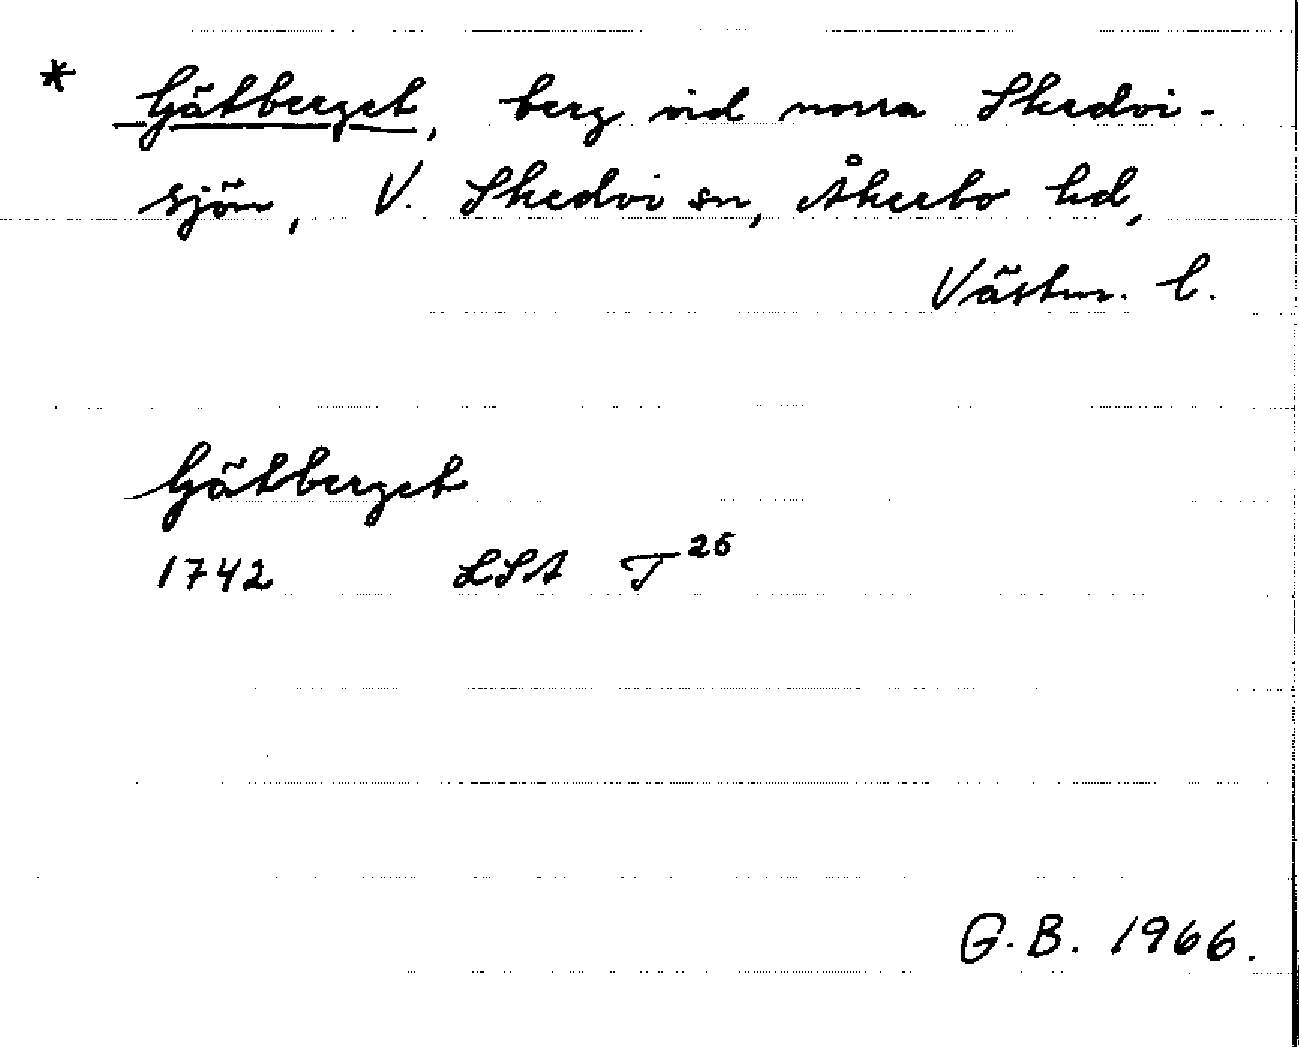 * Gätberget, berg vid norra Skedvi-
sjön, V. Skedvi sn, Åkerbo hd,
Västm. l.
Gätberget
1742 LSA T26
G.B. 1966.